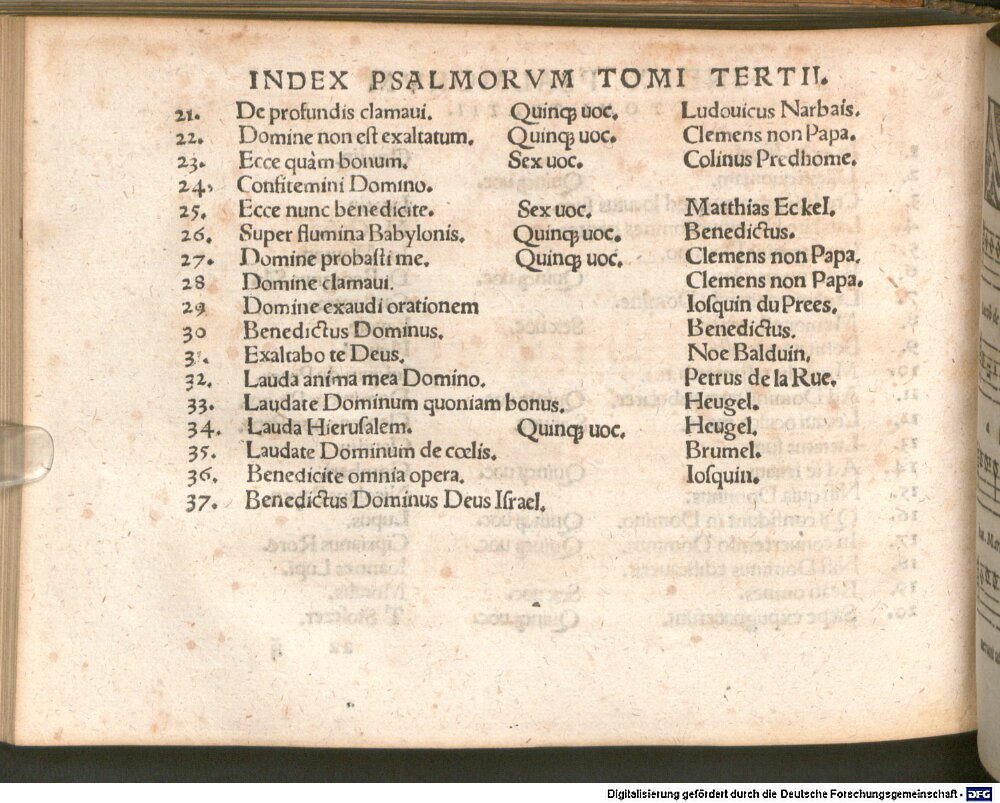 INDEX PSALMORVM TOMI TERTII.
21. De profundis clamaui. Quinqꝫ uoc. Ludouicus Narbais.
22. Domine non est exaltatum. Quinqꝫ uoc. Clemens non Papa.
23. Ecce quàm bonum. Sex uoc. Colinus Predhome.
24. Confitemini Domino.
25. Ecce nunc benedicite. Sex uoc. Matthias Eckel.
26. Super flumina Babylonis. Quinqꝫ uoc. Benedictus.
27. Domine probasti me. Quinqꝫ uoc. Clemens non Papa.
28 Domine clamaui. Clemens non Papa.
29 Domine exaudi orationem Iosquin du Prees.
30 Benedictus Dominus. Benedictus.
31. Exaltabo te Deus. Noe Balduin.
32. Lauda anima mea Domino. Petrus de la Rue.
33. Laudate Dominum quoniam bonus. Heugel.
34. Lauda Hierusalem. Quinqꝫ uoc. Heugel.
35. Laudate Dominum de cœlis. Brumel.
36. Benedicite omnia opera. Iosquin.
37. Benedictus Dominus Deus Israel.
Digitalisierung gefördert durch die Deutsche Forschungsgemeinschaft - DFG